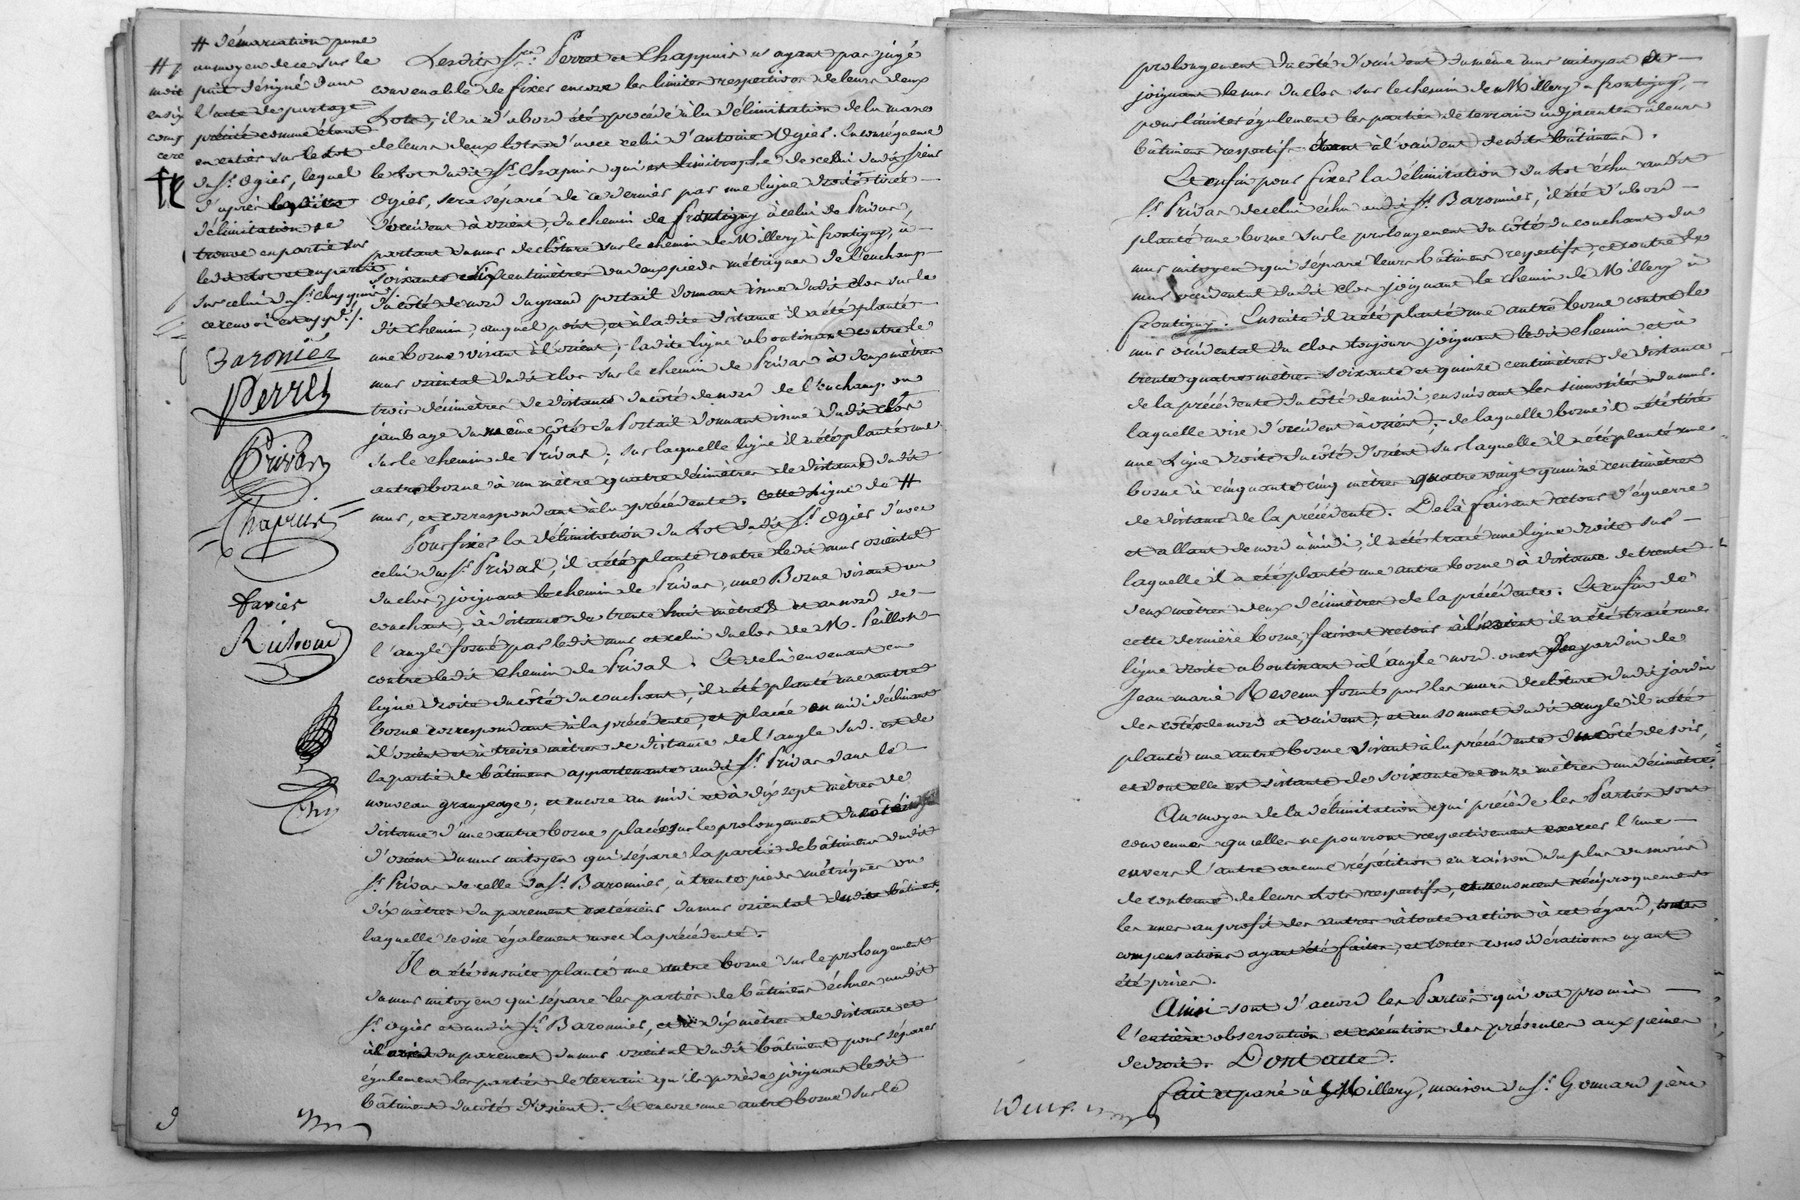 # démarcation prise
au moyen de ce sur le
plan désigné dans
l'acte de partage
précité comme étant
en entier sur le lot
du Sr. Ogier, lequel
d'après
délimitation se
trouve en partie sur
ledit lot et en partie
sur celui du Sr. Chappuis
ce renvoi est app.
Baronier
Perret
Privas
Chapuis
Favier
Lesdits Srs. Perret et Chappuis n'ayant pas jugé
convenable de fixer encore les limites respectives de leurs deux
Lots, il a d'abord été procédé à la délimitation de la masse
de leurs deux lots d'avec celui d'antoine Ogier. En conséquence
le Lot dudit Sr. Chapuis qui est limitrophe de celui dudit sieur
Ogier, sera séparé de ce dernier par une ligne droite tirée
d'occident à orient, du chemin de frontigny à celui de Privas,
partant du mur de clôture sur le chemin de Millery à frontigny, à
soixante dix centimètres ou deux pieds métriques de l'euchamp
du côté de nord du grand portail donnant issue dudit clos sur le
dit chemin, auquel point, et à ladite distance il a été planté
une borne visant à l'orient; ladite ligne aboutissant contre le
mur oriental dudit clos sur le chemin de Privas à deux mètres
trois décimètres de distance du côté de nord de l'euchamp ou
jambage du même côté du Portail donnant issue dudit clos
sur le chemin de Privas; sur laquelle ligne il a été planté une
autre borne à un mètre quatre décimètres de distance dudit
mur, et correspondant à la précédente. Cette ligne de #
Pour fixer la délimitation du Lot dudit Sr. Ogier d'avec
celui du Sr. Privas, il a été planté contre ledit mur oriental
du clos, joignant le chemin de Privas, une Borne visant au
couchant, à distance de trente huit mètres et au nord de
l'angle formé par ledit mur et celui du clos de M. Peillon
contre ledit chemin de Privas. Et de là en venant en
ligne droite du côté du couchant, il a été planté une autre
borne correspondant à la précédente, et placée au midi déclinant
à l'orient et à treize mètres de distance de l'angle sud-est de
la partie de bâtiment appartenante audit Sr. Privas dans le
nouveau grangeage; et encore au midi et à dix sept mètres de
distance d'une autre borne placée sur le prolongement du côté
d'orient du mur mitoyen qui sépare la partie de bâtiment dudit
Sr. Privas de celle du Sr. Baronnier, à trente pieds métriques ou
dix mètres du parement extérieur du mur oriental dudit bâtiment
laquelle se vise également avec la précédente.
Il a été ensuite planté une autre borne sur le prolongement
du mur mitoyen qui sépare les parties de bâtiment échues audit
Sr. Ogier et audit Sr. Baronnier, et à dix mètres de distance et
à l'orient du parement du mur oriental dudit bâtiment pour séparer
également les parties de terrain qu'ils possèdent joignant ledit
bâtiment du côté d'orient. Et encore une autre borne sur le
prolongement du côté d'occident du même mur mitoyen et
joignant le mur du clos sur le chemin de Millery à frontigny,
pour limiter également les parties de terrain adjacentes à leurs
bâtimens respectifs étant à l'occident desdits bâtimens.
Et enfin pour fixer la délimitation du Lot échu audit
Sr. Privas de celui échu audit Sr. Baronnier, il a été d'abord
planté une borne sur le prolongement du côté du couchant du
mur mitoyen qui sépare leurs bâtimens respectifs, et contre le
mur occidental dudit clos joignant le chemin de Millery à
frontigny. Ensuite il a été planté une autre borne contre le
mur occidental du clos toujours joignant ledit chemin et à
trente quatre mètres soixante et quinze centimètres de distance
de la précédente du côté de midi, en suivant les sinuosités du mur.
laquelle vise d'occident à orient; de laquelle borne il a été tiré
une Ligne droite du côté d'orient sur laquelle il a été planté une
borne à cinquante cinq mètres quatre vingt quinze centimètres
de distance de la précédente. De là faisant retour d'équerre
et allant de nord à midi, il a été tracé une ligne droite sur
laquelle il a été planté une autre borne à distance de trente
deux mètres deux décimètres de la précédente. Et enfin de
cette dernière borne, faisant retour à l'orient il a été tracé une
ligne droite aboutissant à l'angle nord-ouest du jardin de
Jean marie Revenu formé par les murs de clôture dudit jardin
des côtés de nord et occident; et au sommet dudit angle il a été
planté une autre borne visant à la précédente du côté de soir,
et dont elle est distante de soixante et onze mètres un décimètre.
Au moyen de la délimitation qui précède les Parties sont
convenues qu'elles ne pourront respectivement exercer l'une
envers l'autre aucune répétition en raison du plus ou moins
de contenue de leurs Lots respectifs, et renoncent réciproquement
les unes au profit des autres à toute action à cet égard, toutes
compensations ayant été faites, et toutes considérations ayant
été prises.
Ainsi sont d'accord les Parties qui ont promis
l'entière observation et exécution des présentes aux peines
de droit. Dont acte.
fait et passé à Millery, maison du Sr. Gomard père